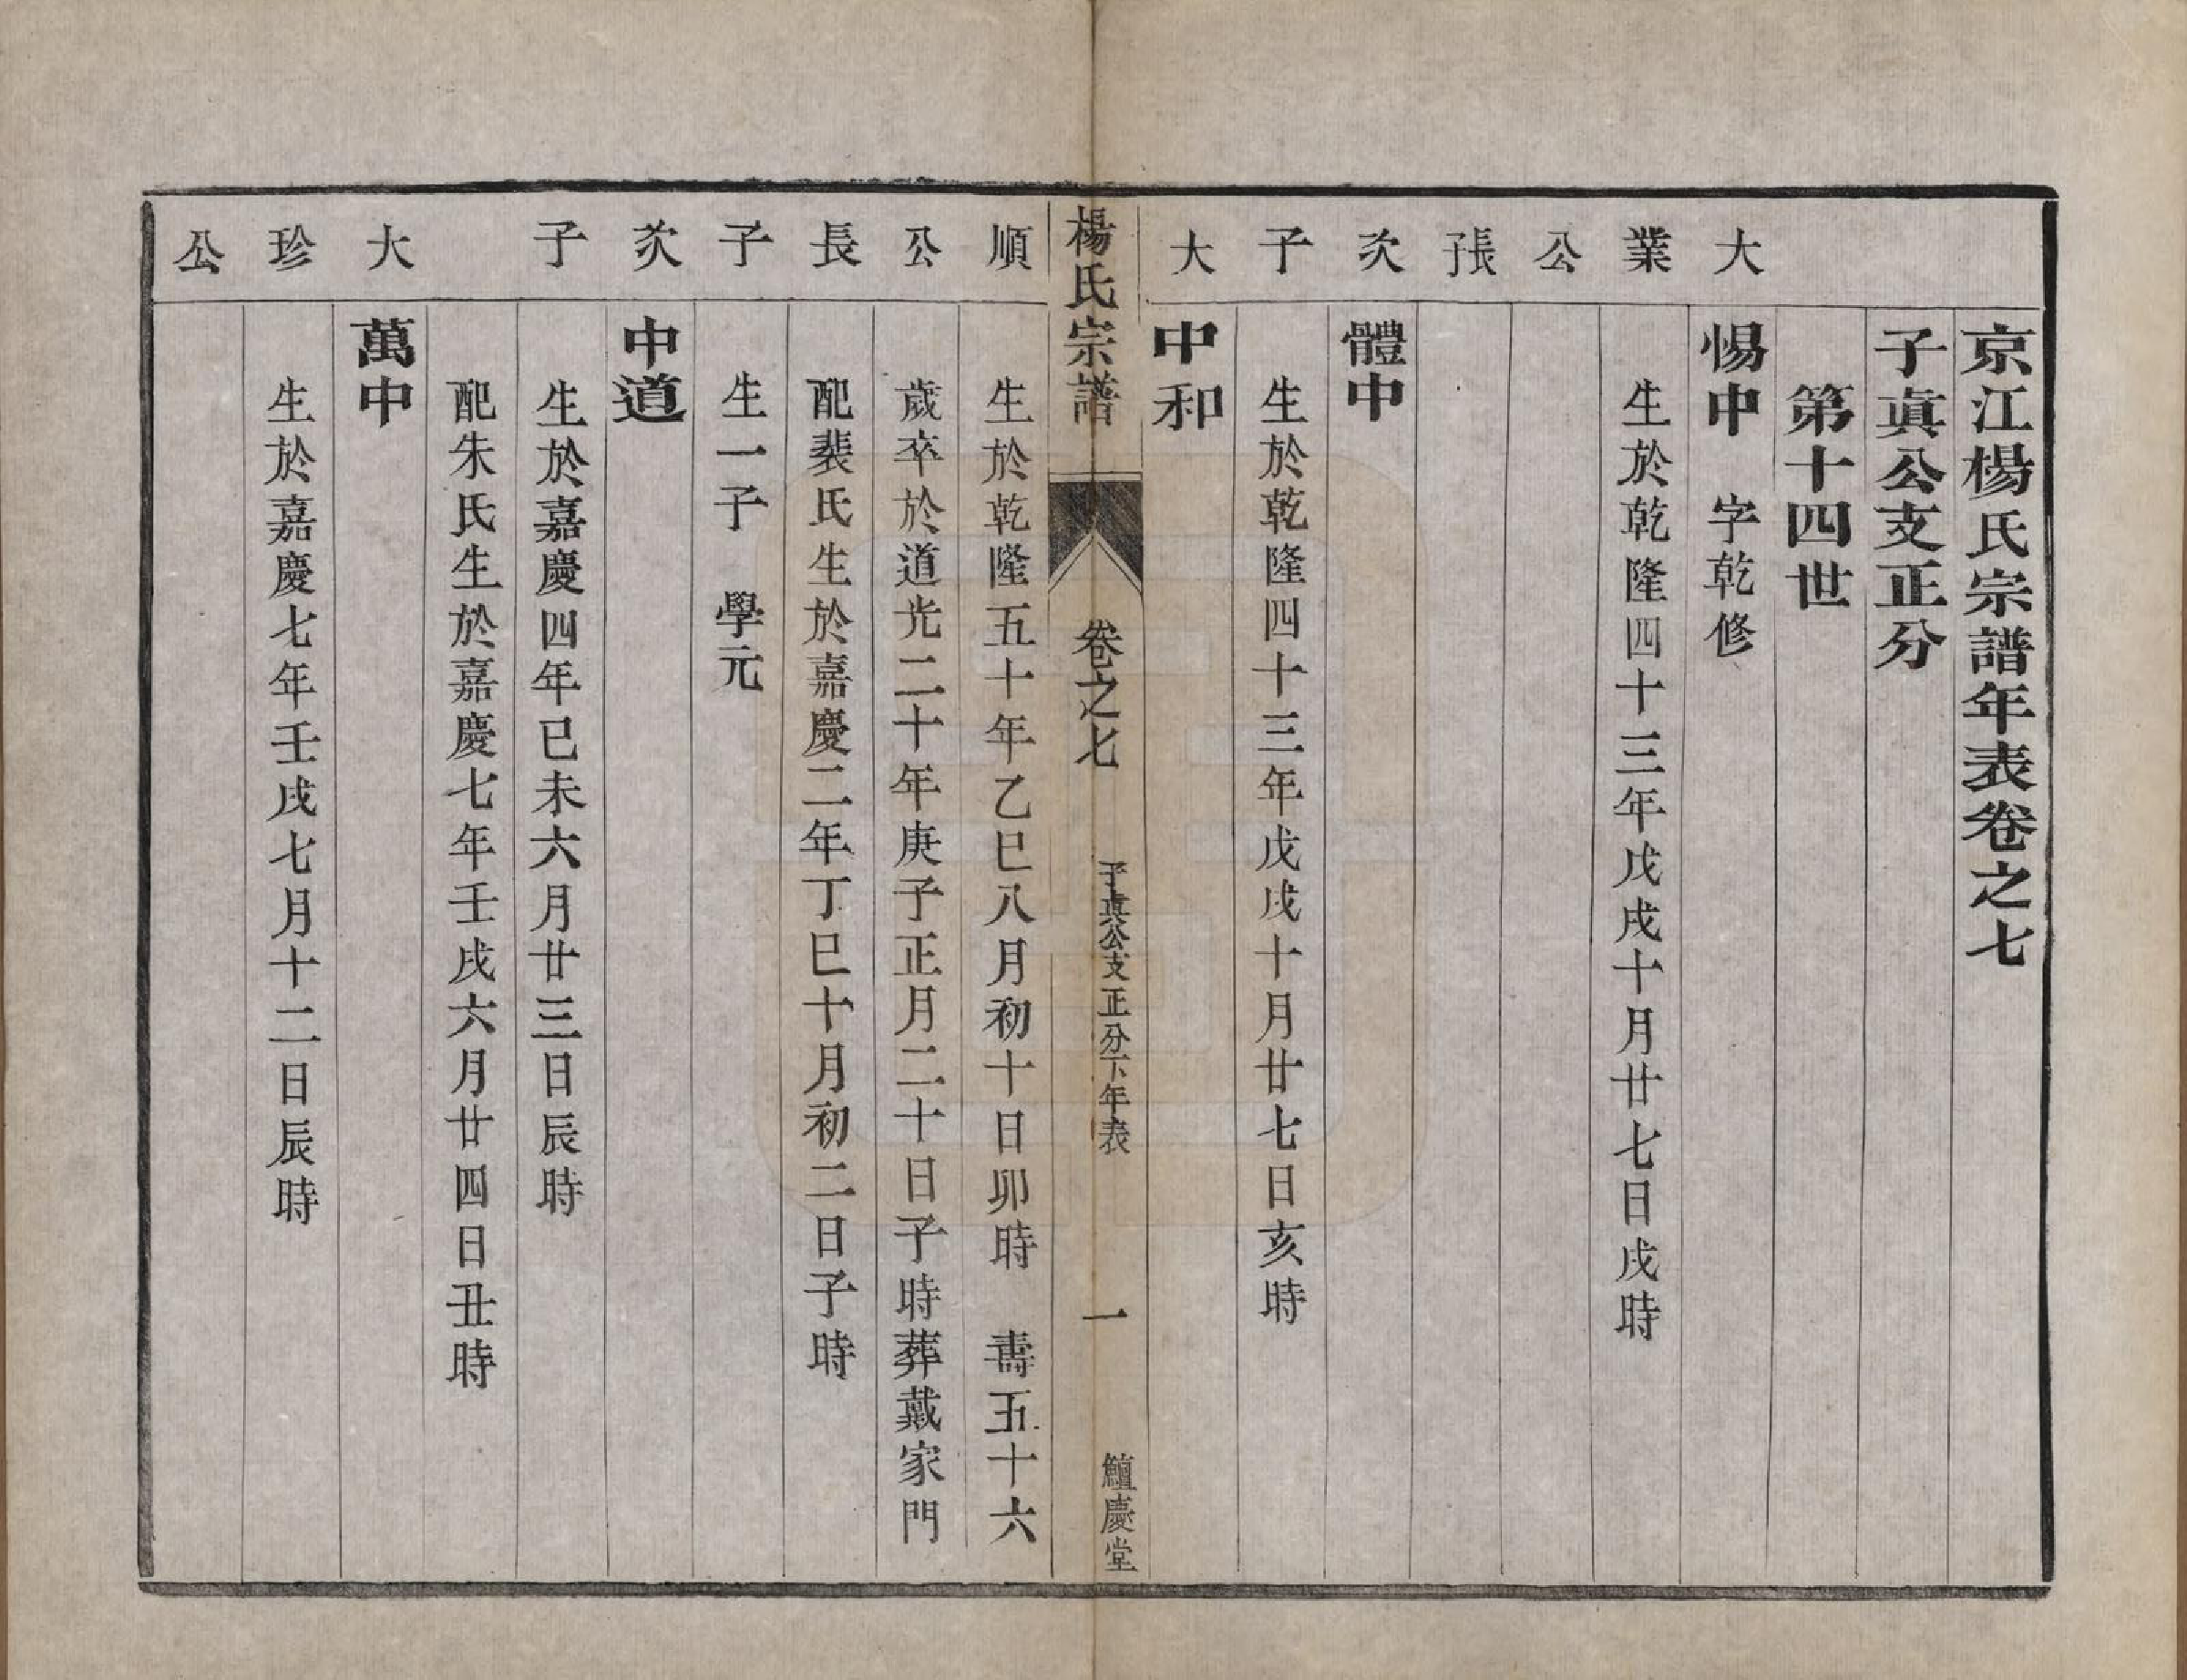 京江楊氏宗譜年表卷之七
子眞公支正分
第十四世
大
惕中　字乾修
業
生於乾隆四十三年戊戌十月廿七日戌時
公
長子
次
體中
子
生於乾隆四十三年戊戌十月廿七日亥時
大
中和
楊氏宗譜　卷之七　子眞公支正分下年表　一　鱣慶堂
順
生於乾隆五十年乙巳八月初十日卯時　壽五十六
公
歲卒於道光二十年庚子正月二十日子時葬戴家門
長
配裴氏生於嘉慶二年丁巳十月初二日子時
子
生一子　學元
次
中道
子
生於嘉慶四年己未六月廿三日辰時
配朱氏生於嘉慶七年壬戌六月廿四日丑時
大
萬中
珍
生於嘉慶七年壬戌七月十二日辰時
公